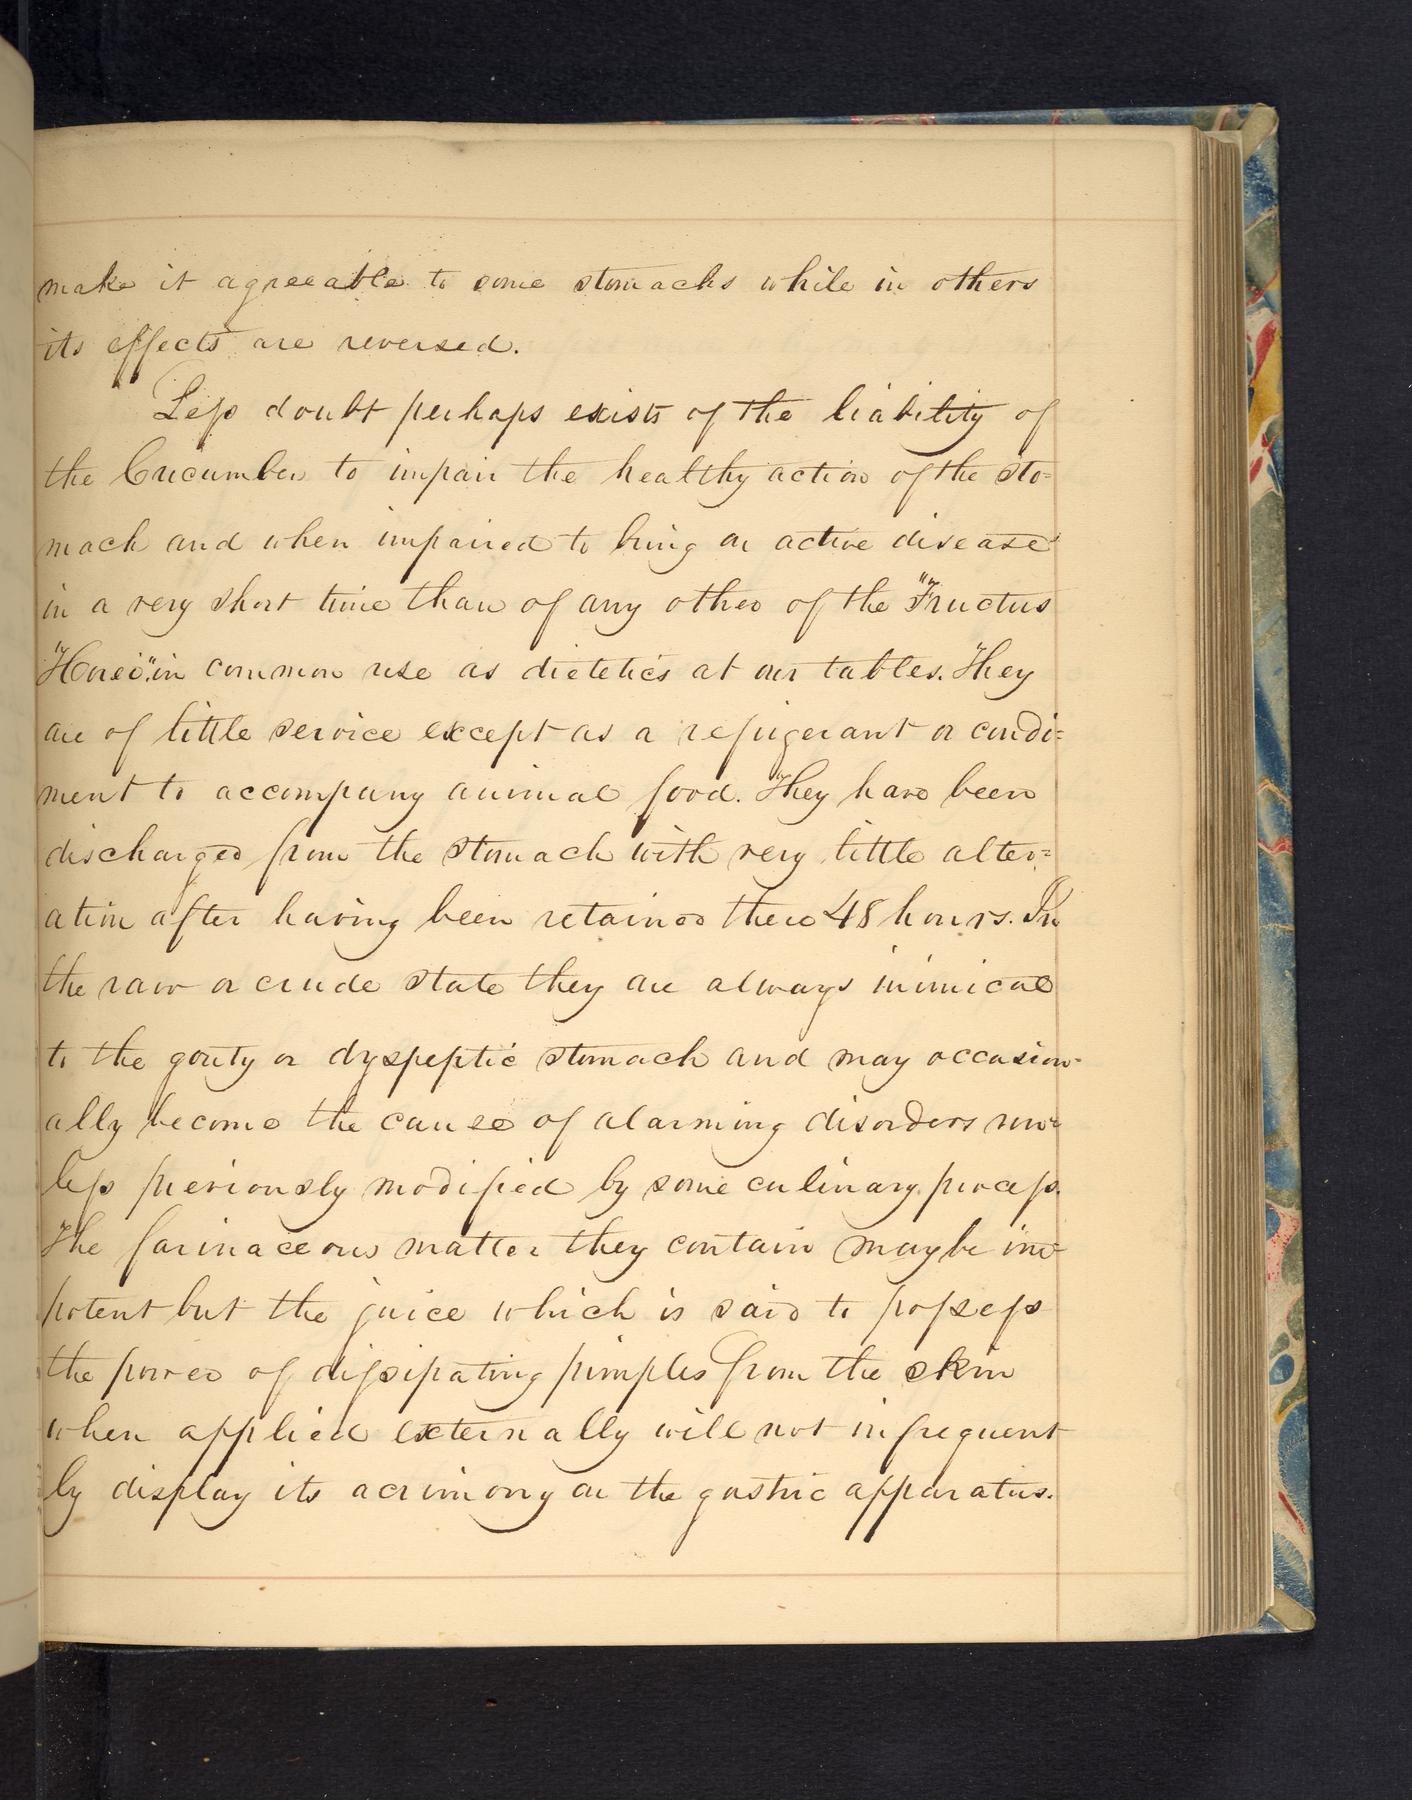 make it agreeable to some stomachs while in others
its effects are reversed.
Less doubt perhaps exists of the liability of
the Cucumber to impair the healthy action of the sto=
mach and when impaired to bring on active disease
in a very short time than of any other of the "Fructus
"Horei". in common use as dietetics at our tables. They
are of little service except as a refrigerant or condi=
ment to accompany animal food. They have been
discharged from the stomach with very little alter=
ation after having been retained there 48 hours. In
the raw or crude state they are always inimical
to the gouty or dyspeptic stomach and may occasion=
ally become the cause of alarming disorders un=
less previously modified by some culinary process.
The farinaceous matter they contain may be im=
potent but the juice which is said to possess
the power of dissipating pimples from the skin
when applied externally will not infrequent
ly display its acrimony on the gastric apparatus.